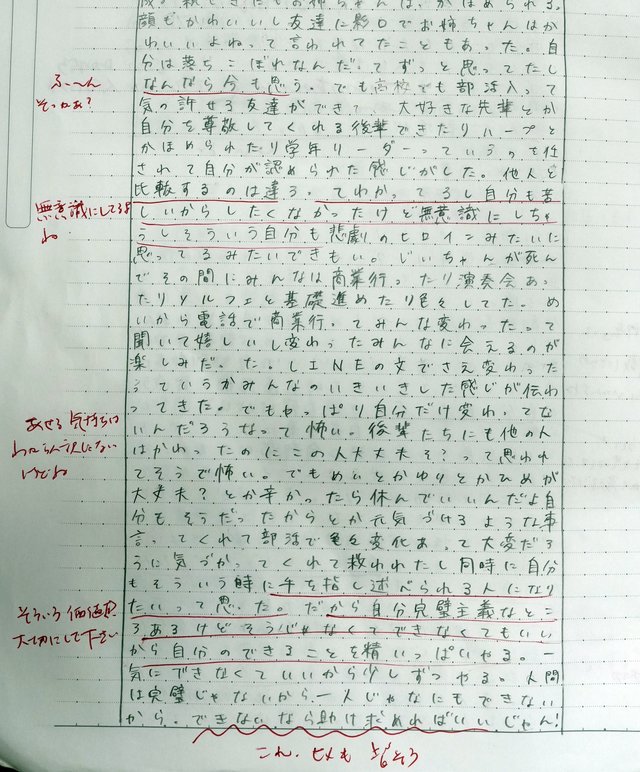 成。親しきにしお姉ちゃんは、かほめられる。
顔もかわいいし友達に影口でお姉ちゃんはか
わいいよねって言われてたこともあった。自
分は落ちこぼれなんだってずっと思ってたし
なんなら今も思う。でも高校でも部活入って
気の許せる友達ができて、大好きな先輩とか
自分を尊敬してくれる後輩できたりハープと
かほめられたり学年リーダーっていうのを任
されて自分が認められた感じがした。他人と
比較するのは違う。てわかってるし自分も苦
しいからしたくなかったけど無意識にしちゃ
うしそういう自分も悲劇のヒロインみたいに
思ってるみたいできもい。じいちゃんが死ん
でその間にみんなは商業行ったり演奏会あっ
たりソルフェと基礎進めたり色々してた。め
いから電話で商業行ってみんな変わったって
聞いて嬉しいし変わったみんなに会えるのが
楽しみだった。LINEの文でさえ変わった
っていうかみんなのいきいきした感じが伝わ
ってきた。でもやっぱり自分だけ変わってな
いんだろうなって怖い。後輩たちにも他の人
はかわったのにこの人大丈夫そ?って思われ
てそうで怖い。でもめいとかゆりとかひめが
大丈夫?とか辛かったら休んでいいんだよ自
分もそうだったからとか元気づけるような事
言ってくれて部活で色々変化あって大変だろ
うに気づかってくれて救われたし同時に自分
もそういう時に手を指し述べられる人になり
たいって思った。だから自分完璧主義なとこ
ろあるけどそうじゃなくてできなくてもいい
から自分のできることを精いっぱいやる。一
気にできなくていいから少しずつやる。人間
は完璧じゃないから一人じゃなにもできない
から。できないなら助け求めればいいじゃん!
ふ〜ん
そっかぁ?
無意識にしてるよ
ね
あせる気持ちは
わからん訳じゃない
けどね
そういう価値観
大切にして下さい
これ、ヒメも